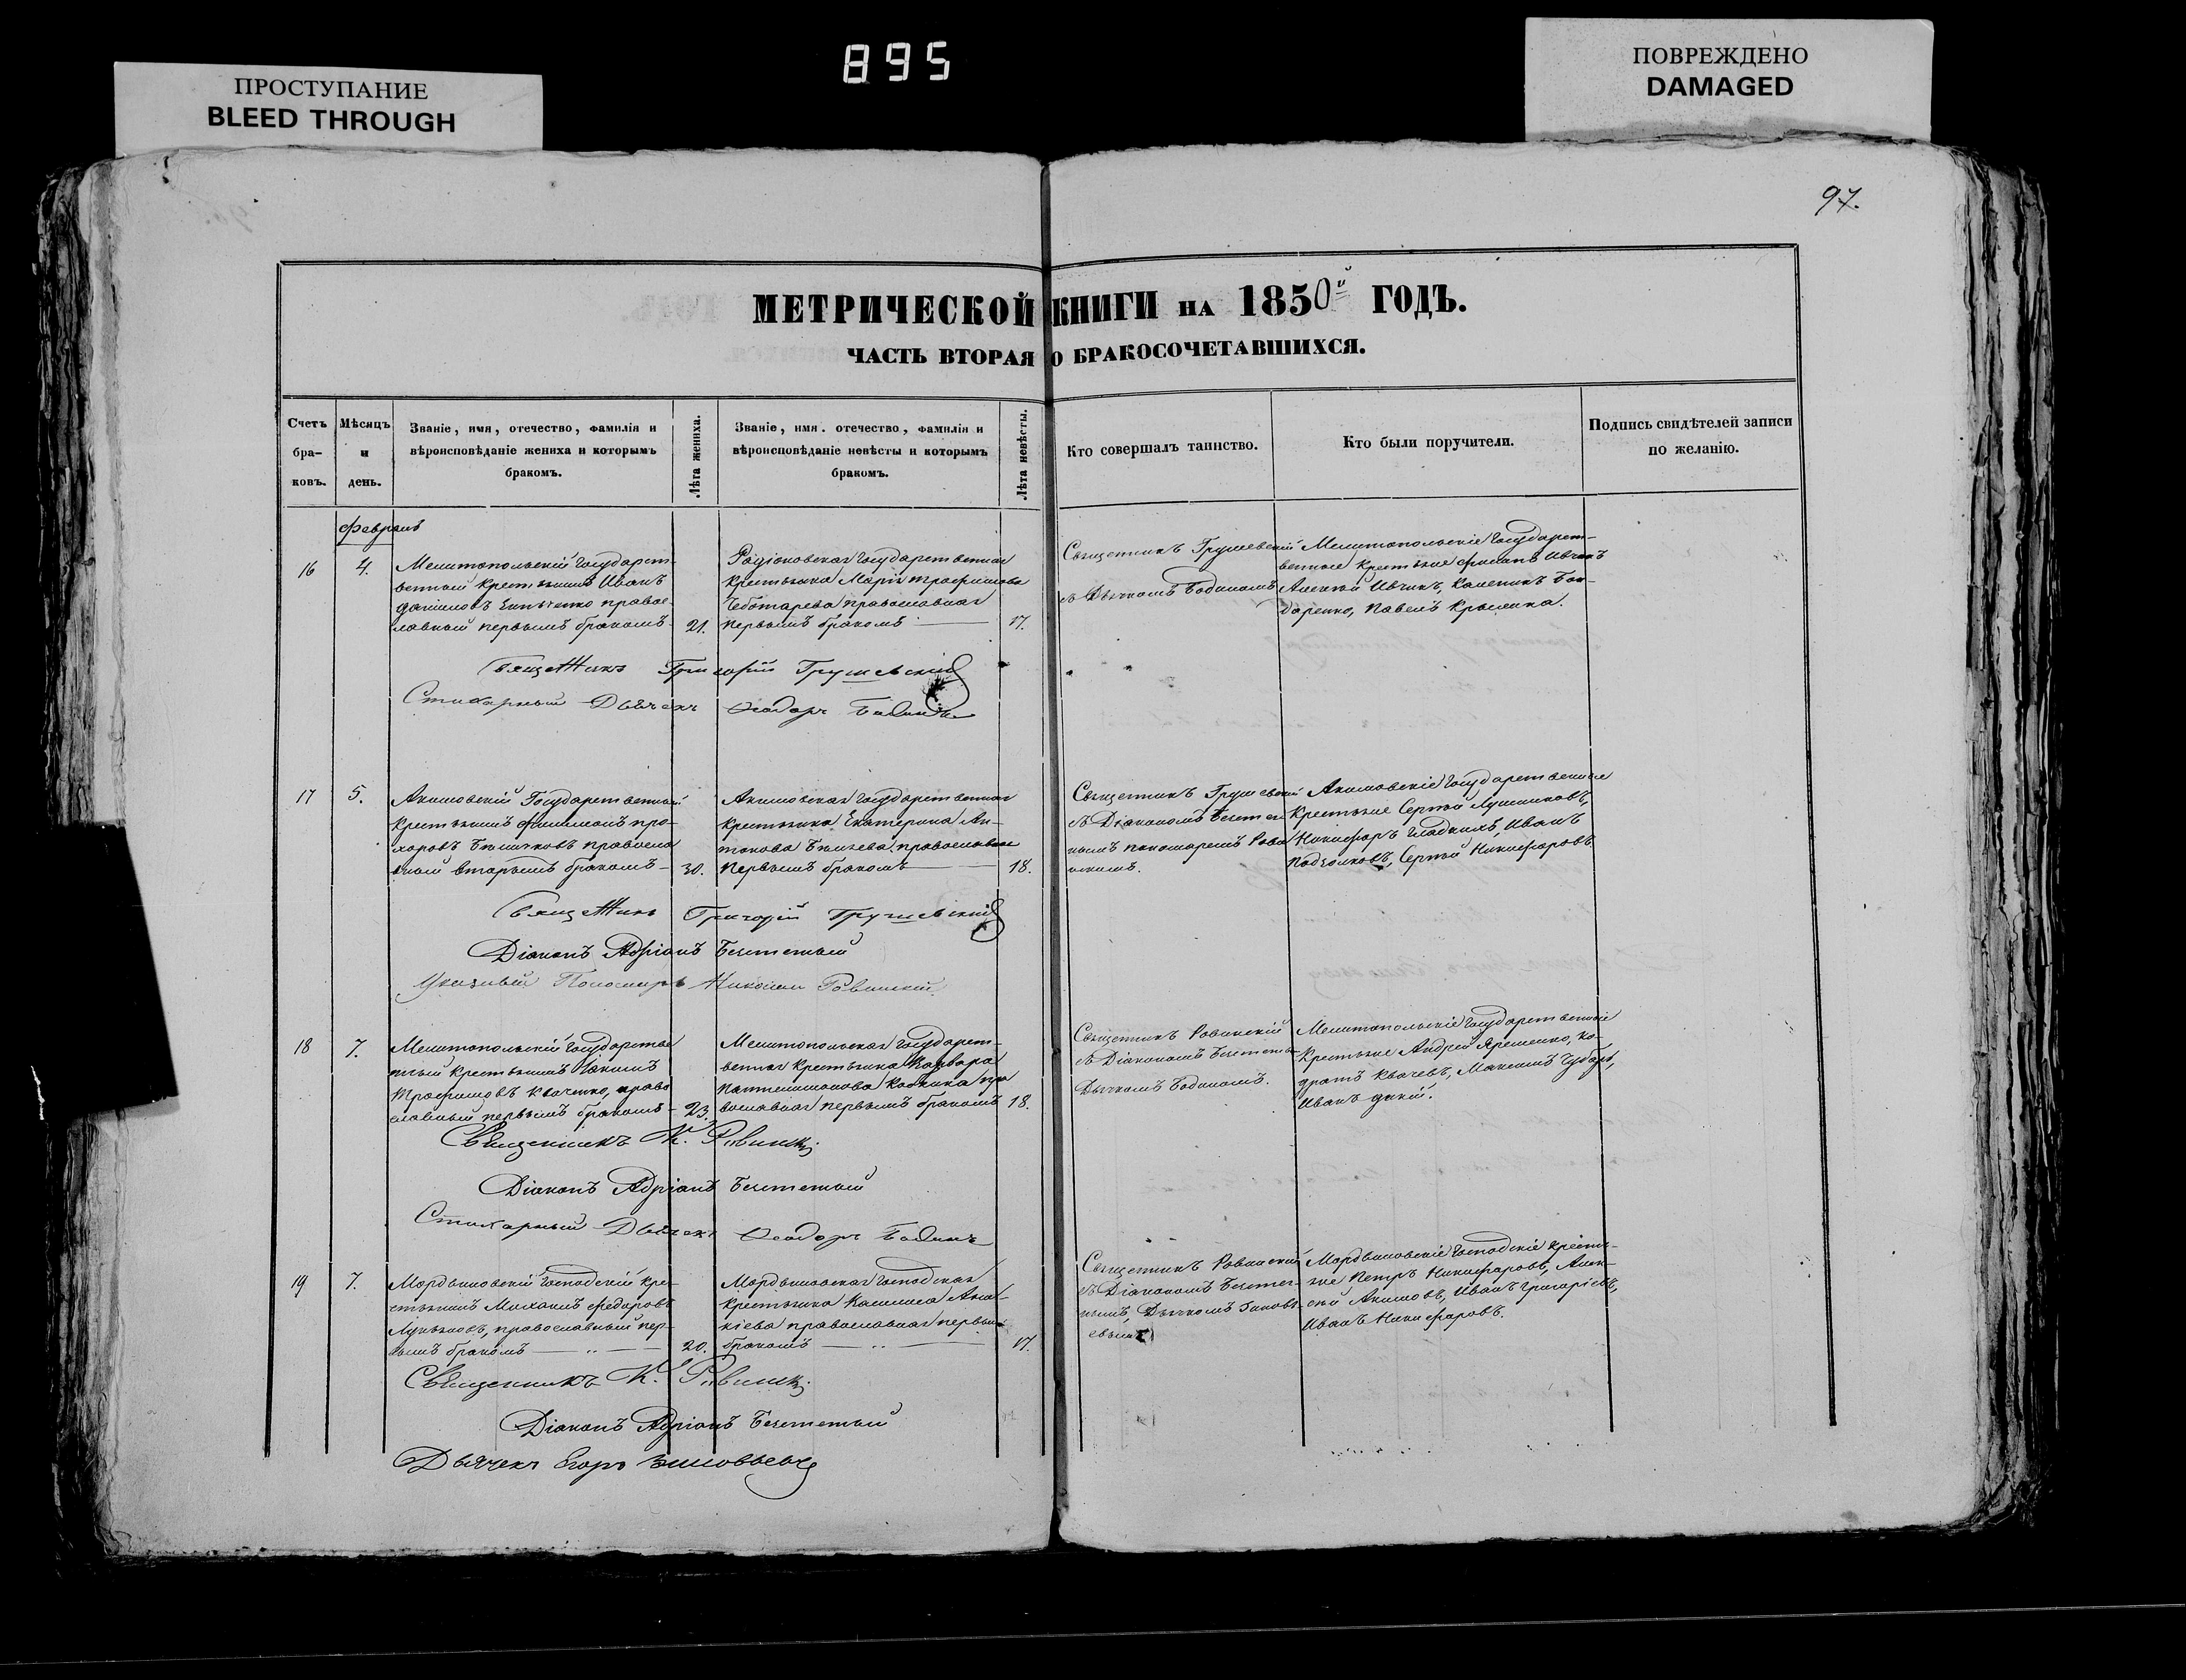 895
ПРОСТУПАНИЕ
BLEED THROUGH
ПОВРЕЖДЕНО
DAMAGED
97.
МЕТРИЧЕСКОЙ КНИГИ НА 1850й ГОДЪ.
ЧАСТЬ ВТОРАЯ О БРАКОСОЧЕТАВШИХСЯ.
Счетъ бра- ковъ.
Мѣсяцъ и день.
Званіе, имя, отечество, фамилія и
вѣроисповѣданіе жениха и которымъ
бракомъ.
Лѣта жениха.
Званіе, имя. отечество, фамилія и
вѣроисповѣданіе невѣсты и которымъ
бракомъ.
Лѣта невѣсты.
Кто совершалъ таинство.
Кто были поручители.
Подпись свидѣтелей записи
по желанію.
Февраль
16
4.
Мелитопольскій Государст-
венный крестьянинъ Иванъ
православный первымъ бракомъ
21.
Государственная
крестьянка Марія Трофимова
Чеботарева православная
первымъ бракомъ
17.
Священникъ Грушевскій
съ Дьячкомъ Бодинымъ
Мелитопольскіе Государст-
венные крестьяне Филипъ Ивчикъ
Алексѣй Ивчикъ, Каленикъ Бон-
даренко, Павелъ
Священникъ Григорій Грушевскій
Стихарный Дьячекъ Ѳеодоръ Бодинъ
17
5.
Акимовскій Государственный
крестьянинъ Филимонъ Про-
хоровъ правосла
вный вторымъ бракомъ
30.
Акимовская Государственная
крестьянка Екатерина Ан-
тонова православная
первымъ бракомъ
18.
Священникъ Грушевскій
съ Діакономъ
нымъ пономаремъ Рови
нскимъ.
Акимовскіе Государственные
крестьяне Сергѣй Лушниковъ,
Никифоръ Гладкихъ, Иванъ
Подзолковъ, Сергѣй Никифоровъ
Священникъ Григорій Грушевскій
Діаконъ Адріанъ
Указный Пономарь Николай Ровинскій
18
7.
Мелитопольскій Государстве
нный крестьянинъ
Трофимовъ Кваченко, право
славный первымъ бракомъ
23.
Мелитопольская Государст-
венная крестьянка Варвара
Пантелимонова пра
вославная первымъ бракомъ
18.
Священникъ Ровинскій
съ Діакономъ
Дьячкомъ Бодинымъ.
Мелитопольскіе Государственные
крестьяне Андрей Яременко, Ко-
дратъ Квачевъ, Максимъ
Иванъ Дикій.
Священникъ К. Ровинскій
Діаконъ Адріанъ
Стихарный Дьячекъ Ѳеодоръ Бодинъ
19
7.
Мордвиновскій Господскій кре-
стьянинъ Михаилъ Федоровъ
Лукьяновъ, православный пер-
вымъ бракомъ
20.
Мордвиновская Господская
крестьянка Ана-
кіева православная первымъ
бракомъ
17.
Священникъ Ровинскій
съ Діакономъ
нымъ, Дьячкомъ
Мордвиновскіе Господскіе кресть-
яне Петръ Никифоровъ, Алек-
сѣй Акимовъ, Иванъ Григоріевъ,
Иванъ Никифоровъ.
Священникъ К. Ровинскій
Діаконъ Адріанъ
Дьячекъ Егоръ